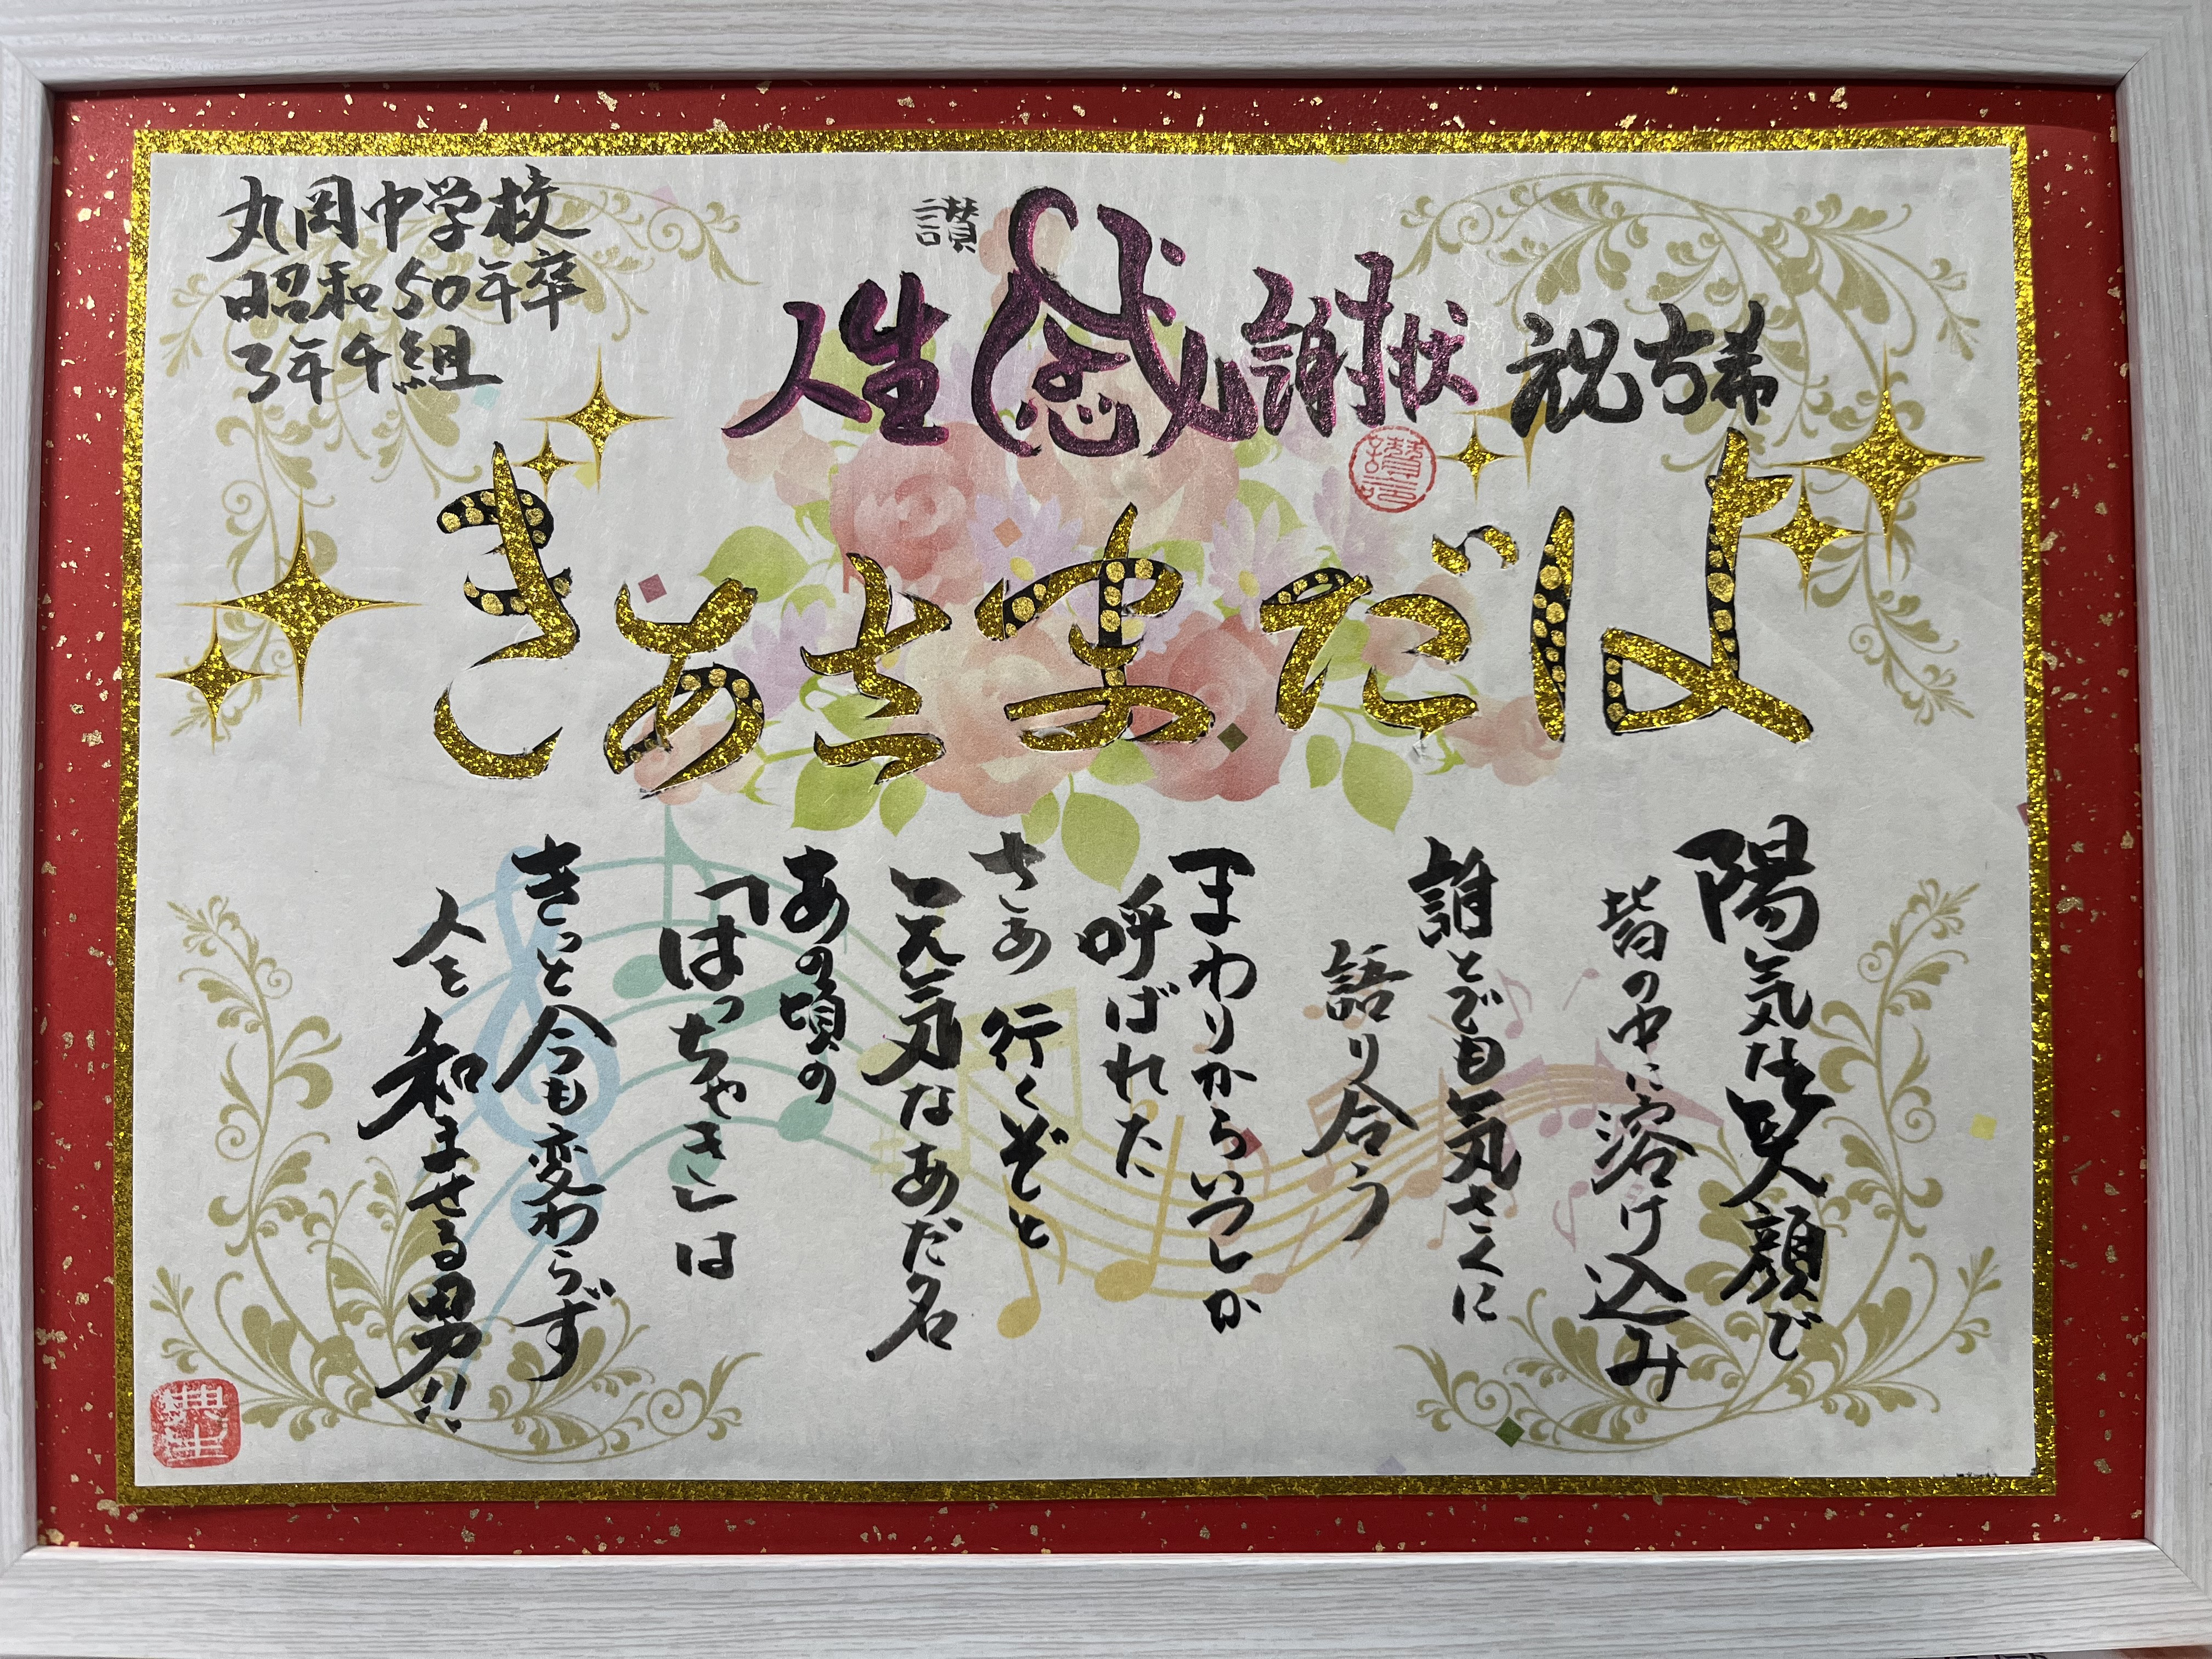 丸岡中学校
昭和50年卒
3年4組
讃
人生感謝状 祝古希
はだまさあき
陽気な笑顔で
皆の中に溶け込み
誰とでも気さくに
語り合う
まわりからいつしか
呼ばれた
さあ行くぞと
元気なあだ名
あの頃の
「はっちゃき」は
きっと今も変わらず
人を和ませる男!!